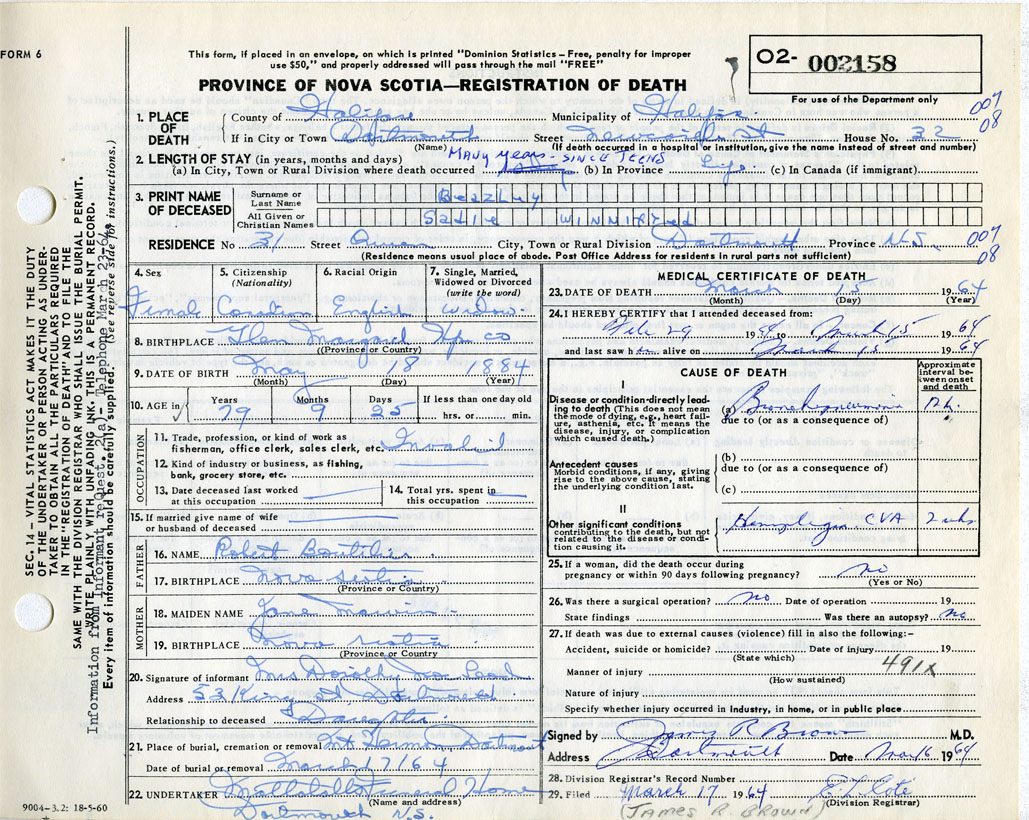 FORM 6
This form, if placed in an envelope, on which is printed "Dominion Statistics – Free, penalty for improper
use $50," and properly addressed will pass through the mail "FREE"
PROVINCE OF NOVA SCOTIA—REGISTRATION OF DEATH
O2- 002158
For use of the Department only
007
08
1. PLACE OF DEATH
County of Halifax Municipality of Halifax
If in City or Town Dartmouth Street House No. 32
(Name) (If death occurred in a hospital or institution, give the name instead of street and number)
2. LENGTH OF STAY (in years, months and days) MANY years - SINCE TEENS
(a) In City, Town or Rural Division where death occurred (b) In Province Life (c) In Canada (if immigrant)
3. PRINT NAME OF DECEASED
Surname or Last Name Beazley
All Given or Christian Names Sadie WINNifred
RESIDENCE No 31 Street Queen City, Town or Rural Division Dartmouth Province N.S.
007
08
(Residence means usual place of abode. Post Office Address for residents in rural parts not sufficient)
4. Sex Female
5. Citizenship (Nationality) Canadian
6. Racial Origin English
7. Single, Married, Widowed or Divorced (write the word) Widow
8. BIRTHPLACE Glen Margaret Hfx Co
(Province or Country)
9. DATE OF BIRTH May 18 1884
(Month) (Day) (Year)
10. AGE in Years 79 Months 9 Days 25 If less than one day old hrs. or min.
OCCUPATION
11. Trade, profession, or kind of work as fisherman, office clerk, sales clerk, etc. Invalid
12. Kind of industry or business, as fishing, bank, grocery store, etc.
13. Date deceased last worked at this occupation
14. Total yrs. spent in this occupation
15. If married give name of wife or husband of deceased
FATHER
16. NAME Robert Boutilier
17. BIRTHPLACE Nova Scotia
(Province or Country)
MOTHER
18. MAIDEN NAME Jane
19. BIRTHPLACE Nova Scotia
(Province or Country
20. Signature of informant Mrs Dorothy
Address 53 King St, Dartmouth
Relationship to deceased Daughter
21. Place of burial, cremation or removal Mt Hermon Dartmouth
Date of burial or removal March 17/64
22. UNDERTAKER Mattatall Funeral Home
(Name and address)
Dartmouth N.S.
9004-3.2: 18-5-60
MEDICAL CERTIFICATE OF DEATH
23. DATE OF DEATH March 15 1964
(Month) (Day) (Year)
24. I HEREBY CERTIFY that I attended deceased from:
Feb 29 1964 March 15 1964
and last saw her alive on March 15 1964
CAUSE OF DEATH
Approximate interval between onset and death
I
Disease or condition directly leading to death (This does not mean the mode of dying, e.g., heart failure, asthenia, etc. It means the disease, injury, or complication which caused death.)
(a) Bronchopneumonia
due to (or as a consequence of)
Antecedent causes
Morbid conditions, if any, giving rise to the above cause, stating the underlying condition last.
(b)
due to (or as a consequence of)
(c)
II
Other significant conditions contributing to the death, but not related to the disease or condition causing it.
Hemiplegia CVA 2 wks
25. If a woman, did the death occur during pregnancy or within 90 days following pregnancy? no
(Yes or No)
26. Was there a surgical operation? no Date of operation 19
State findings Was there an autopsy? no
27. If death was due to external causes (violence) fill in also the following:–
Accident, suicide or homicide? Date of injury 19
(State which)
491X
Manner of injury
(How sustained)
Nature of injury
Specify whether injury occurred in industry, in home, or in public place
Signed by James R Brown M.D.
Address Dartmouth Date Mar 16 1964
28. Division Registrar's Record Number
29. Filed March 17 1964 Cote
(Division Registrar)
(JAMES R. BROWN)
SEC. 14 – VITAL STATISTICS ACT MAKES IT THE DUTY
OF THE UNDERTAKER OR PERSON ACTING AS UNDERTAKER TO OBTAIN ALL THE PARTICULARS REQUIRED
IN THE "REGISTRATION OF DEATH" AND TO FILE THE
SAME WITH THE DIVISION REGISTRAR WHO SHALL ISSUE THE BURIAL PERMIT.
WRITE PLAINLY WITH UNFADING INK. THIS IS A PERMANENT RECORD.
Information from Informant re Quest. 2(a). Telephone March 23/64
Every item of information should be carefully supplied. (See reverse side for instructions.)